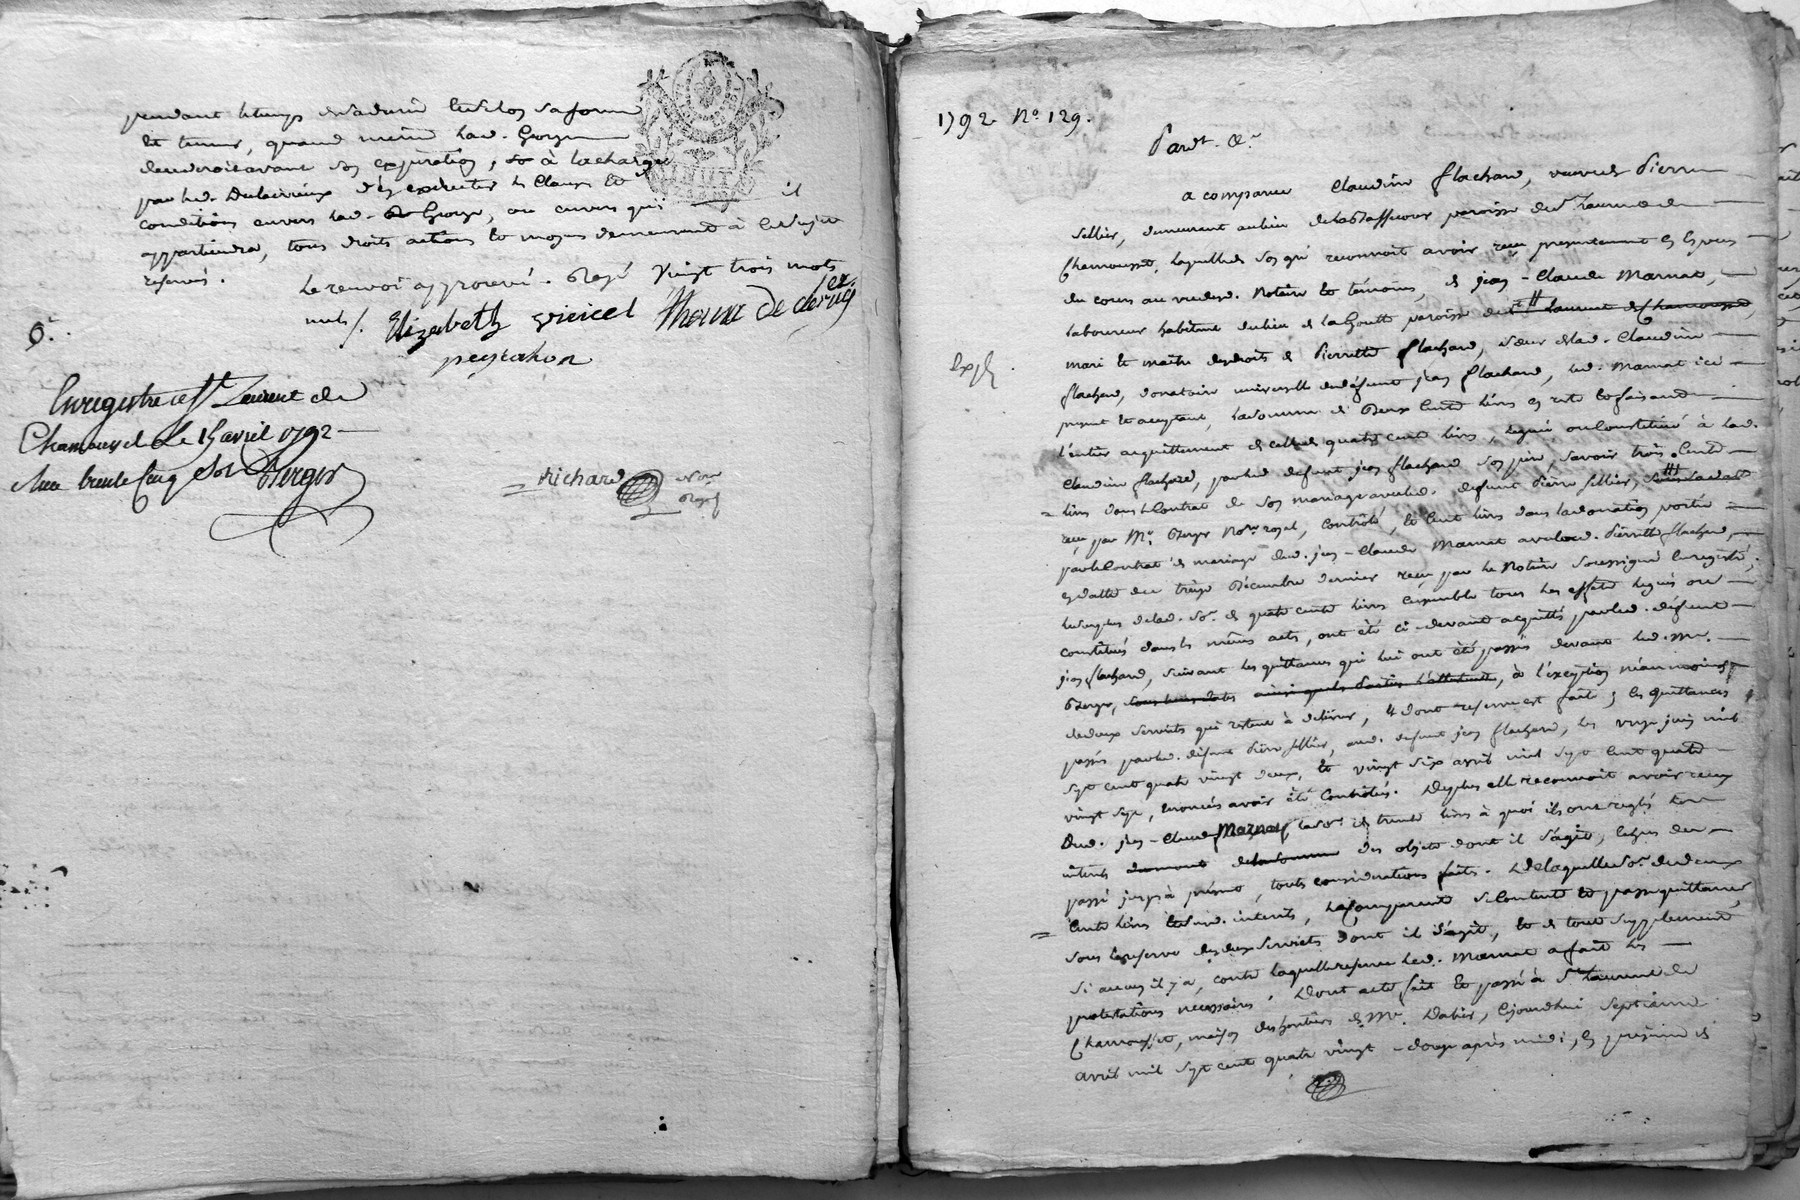 pendant le temps de sa durée
et teneur, quand même lad. George
viendroit avant son expiration, à la charge
par led. Declerieux d'en exécuter les clauses et
conditions envers lad. George, ou envers qui il
appartiendra, tous droits actions et moyens demeurant à le sujet
réservés.
Le renvoi approuvé. Rayé vingt trois mots
nuls /. Elizabeth
peyrachon
Enregistré à St Laurent de
Chamousset le 15 avril 1792
Reçu trente cinq sols Berger
Richard Nore
Royal
1792 No. 129.
Pardt. &c.
a comparue Claudine flachard, veuve de Pierre
Sellier, demeurant au lieu de paroisse de St Laurent de
Chamousset, laquelle de son gré reconnoit avoir reçu présentement en espèces
du cours au vu desd. Notaire et témoins, de jean-Claude Marnat,
laboureur habitant du lieu de la Goutte paroisse de St Laurent de Chamousset,
mari et maître des droits de Pierrette flachard, soeur de lad. Claudine
flachard, donataire universelle de défunt jean flachard, led. Marnat ici
présent et acceptant, la somme de Deux Cents livres en reste et faisant
l'entier acquittement de celle de quatre cent livres, léguée ou constituée à lad.
Claudine flachard, par led. défunt jean flachard son père, savoir trois cents
livres dans le Contrat de son mariage avec led. défunt Pierre Sellier,
reçu par Me. Berger Nore royal, contrôlé, et cent livres dans la donation portée
par le Contrat de mariage dud. jean-Claude Marnat avec lad. Pierrette flachard,
en datte du treize Décembre dernier reçu par le Notaire soussigné enregistré,
le surplus de lad. Se. de quatre cents livres ensemble tous les effets légués ou
constitués dans les mêmes actes, ont été ci-devant acquittés par led. défunt
jean flachard, suivant les quittances qui lui ont été passées devant led. Me.
Berger, à l'exception néanmoins
de deux serviets qui restent à délivrer, et dont réserve est faite; les quittances
passées par led. défunt Pierre Sellier, aud. défunt jean flachard, les onze juin mil
sept cent quatre vingt deux, et vingt six avril mil sept cent quatre
vingt sept, énoncées avoir été contrôlées. De plus elle reconnoit avoir reçu
Dud. jean-Claude Marnat la Se. de trente livres à quoi ils ont réglés les
intérêts des objets dont il s'agit, échus du
passé jusqu'à présent, toutes considérations faites. De laquelle Se. de deux
cents livres et desd. intérêts, la Comparante se contente et passe quittance,
sous la réserve des deux serviets dont il s'agit, et de tout supplément
si aucun il y a, contre laquelle réserve led. Marnat a fait les
protestations nécessaires. Dont acte fait et passé à St Laurent de
Chamousset, maison des héritiers de Me. Dabier, cejourdhui septième
avril mil sept cent quatre vingt-douze après midi, en présence de